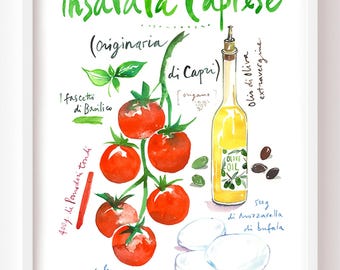 Insalata Caprese
(originaria
di Capri)
[origano]
1 fascetto
di Basilico
Olio di Oliva
extravergine
OLIVE
OIL
400g. di Pomodori tondi
500g
di mozzarella
di bufala